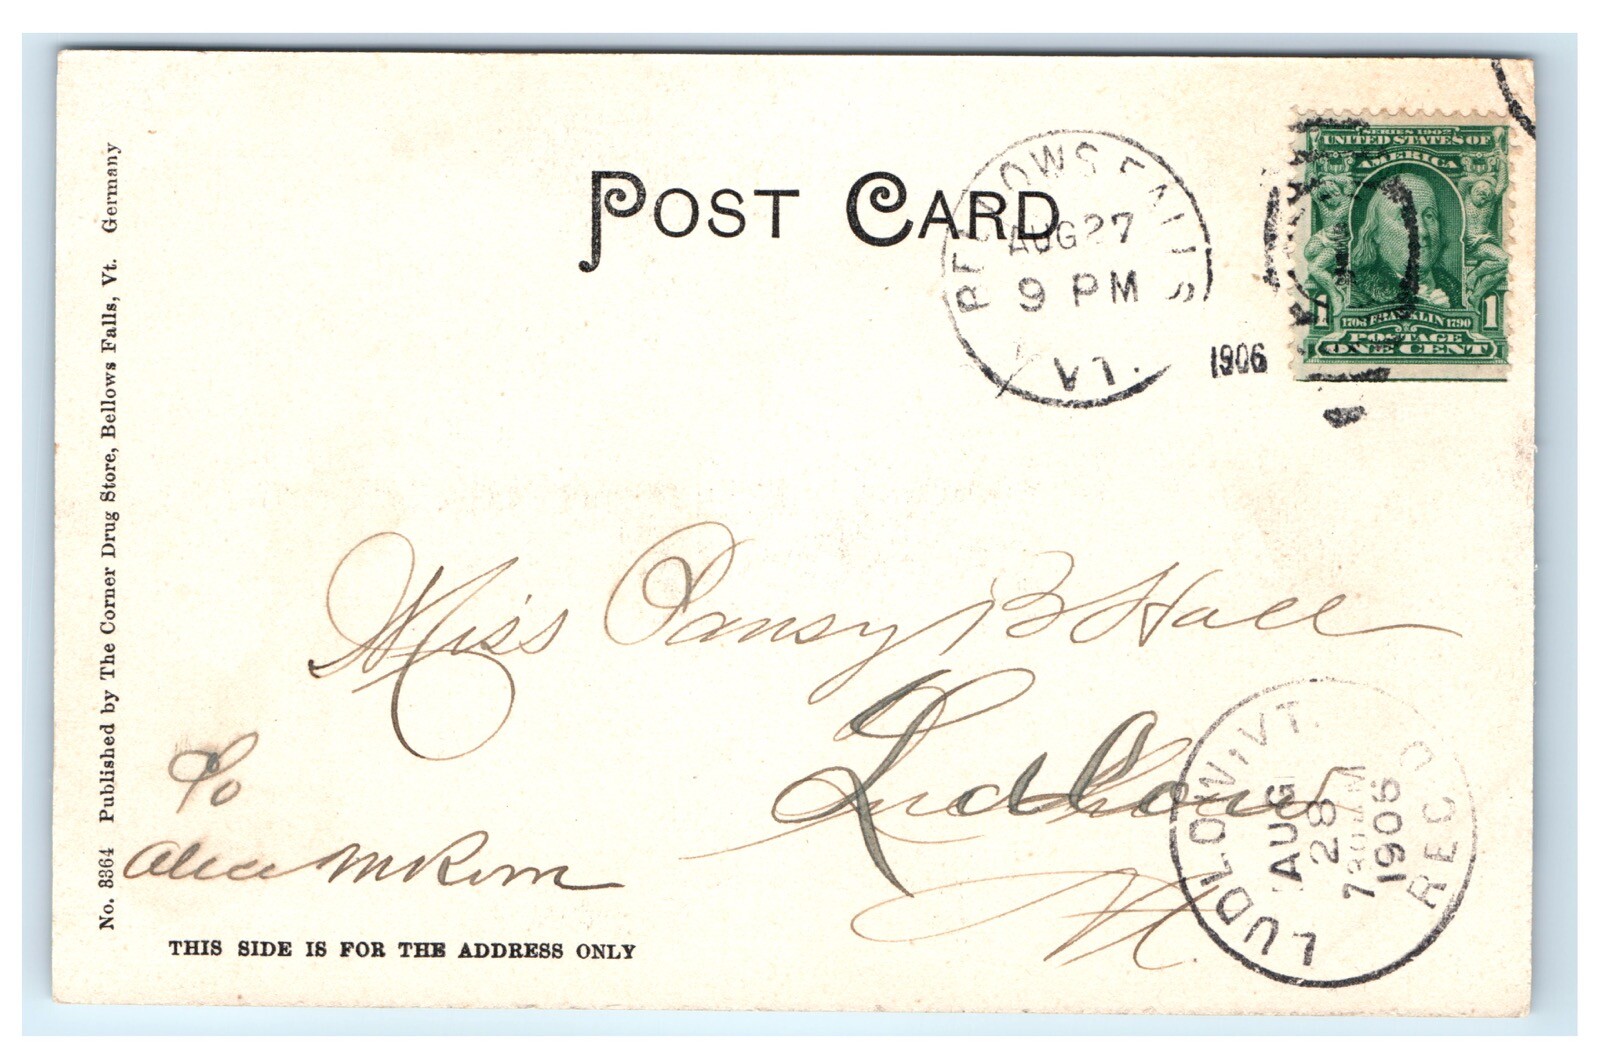 POST CARD
BELLOWS FALLS
AUG 27
9 PM
VT.
1906
SERIES 1902
UNITED STATES OF
AMERICA
1 1
1706 FRANKLIN 1790
POSTAGE
ONE CENT
No. 3364 Published by The Corner Drug Store, Bellows Falls, Vt. Germany
Miss Pansy B Hall
Ludlow
Vt.
c/o
Alice
LUDLOW, VT.
AUG
28
730AM
1906
REC'D.
THIS SIDE IS FOR THE ADDRESS ONLY